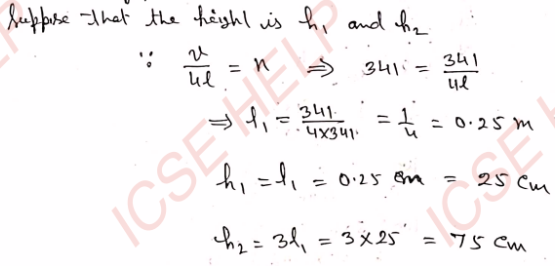 Suppose that the height is h₁ and h₂
∵ v/4l = n ⇒ 341 = 341/4l
⇒ l₁ = 341/4×341 = 1/4 = 0.25 m
h₁ = l₁ = 0.25 m = 25 cm
h₂ = 3l₁ = 3×25 = 75 cm
ICSE HELP
ICSE HELP